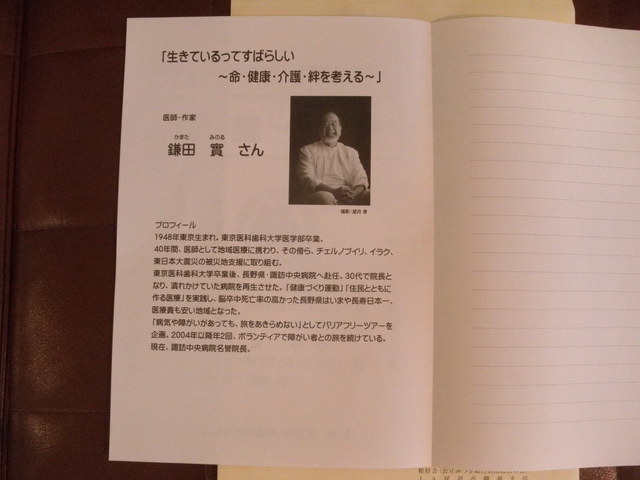 「生きているってすばらしい
～命・健康・介護・絆を考える～」
医師・作家
かまた みのる
鎌田 實 さん
プロフィール
1948年東京生まれ。東京医科歯科大学医学部卒業。
40年間、医師として地域医療に携わり、その傍ら、チェルノブイリ、イラク、
東日本大震災の被災地支援に取り組む。
東京医科歯科大学卒業後、長野県・諏訪中央病院へ赴任。30代で院長と
なり、潰れかけていた病院を再生させた。「健康づくり運動」「住民とともに
作る医療」を実践し、脳卒中死亡率の高かった長野県はいまや長寿日本一、
医療費も安い地域となった。
「病気や障がいがあっても、旅をあきらめない」としてバリアフリーツアーを
企画。2004年以降年2回、ボランティアで障がい者との旅を続けている。
現在、諏訪中央病院名誉院長。